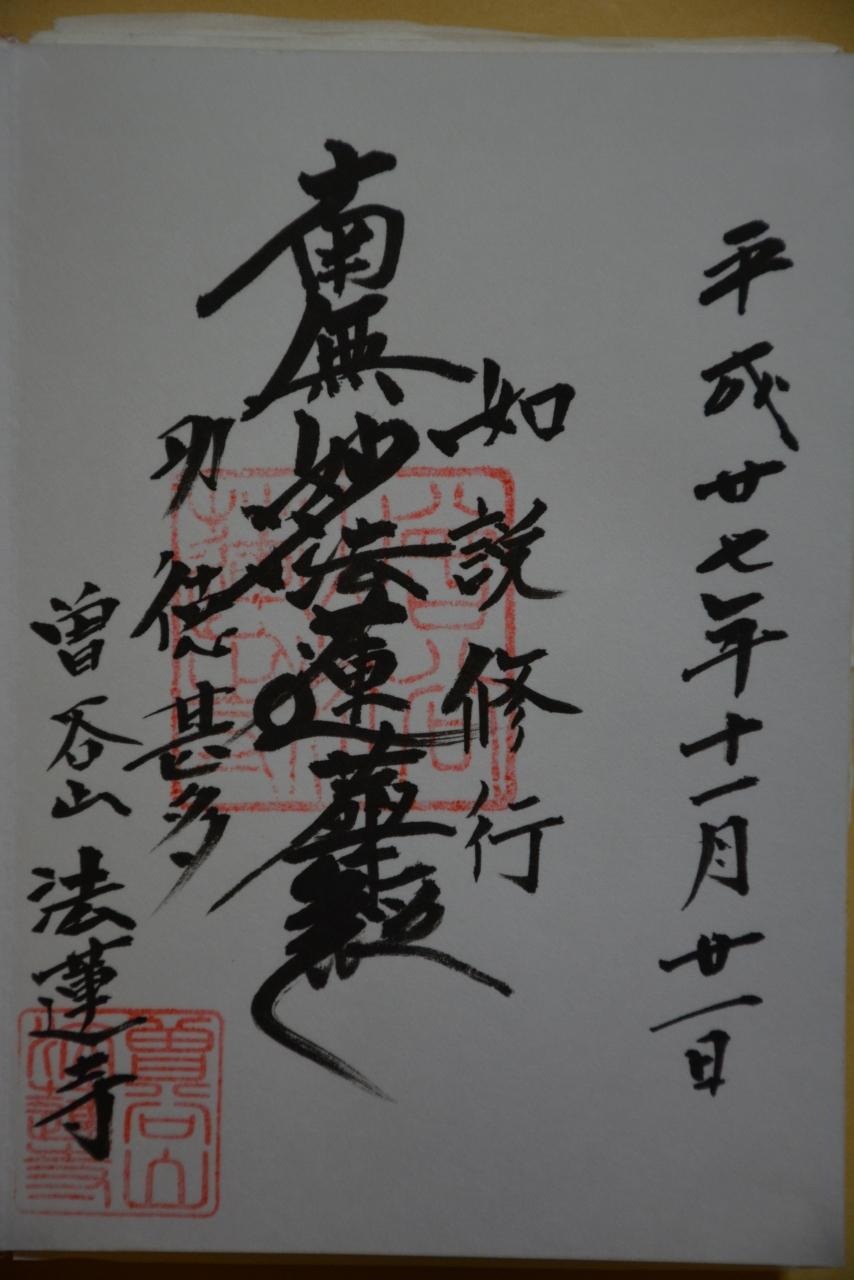 平成廿七年十一月廿一日
如説修行
南無妙法蓮華経
功徳甚多
曽谷山法蓮寺
曽谷山
法蓮寺